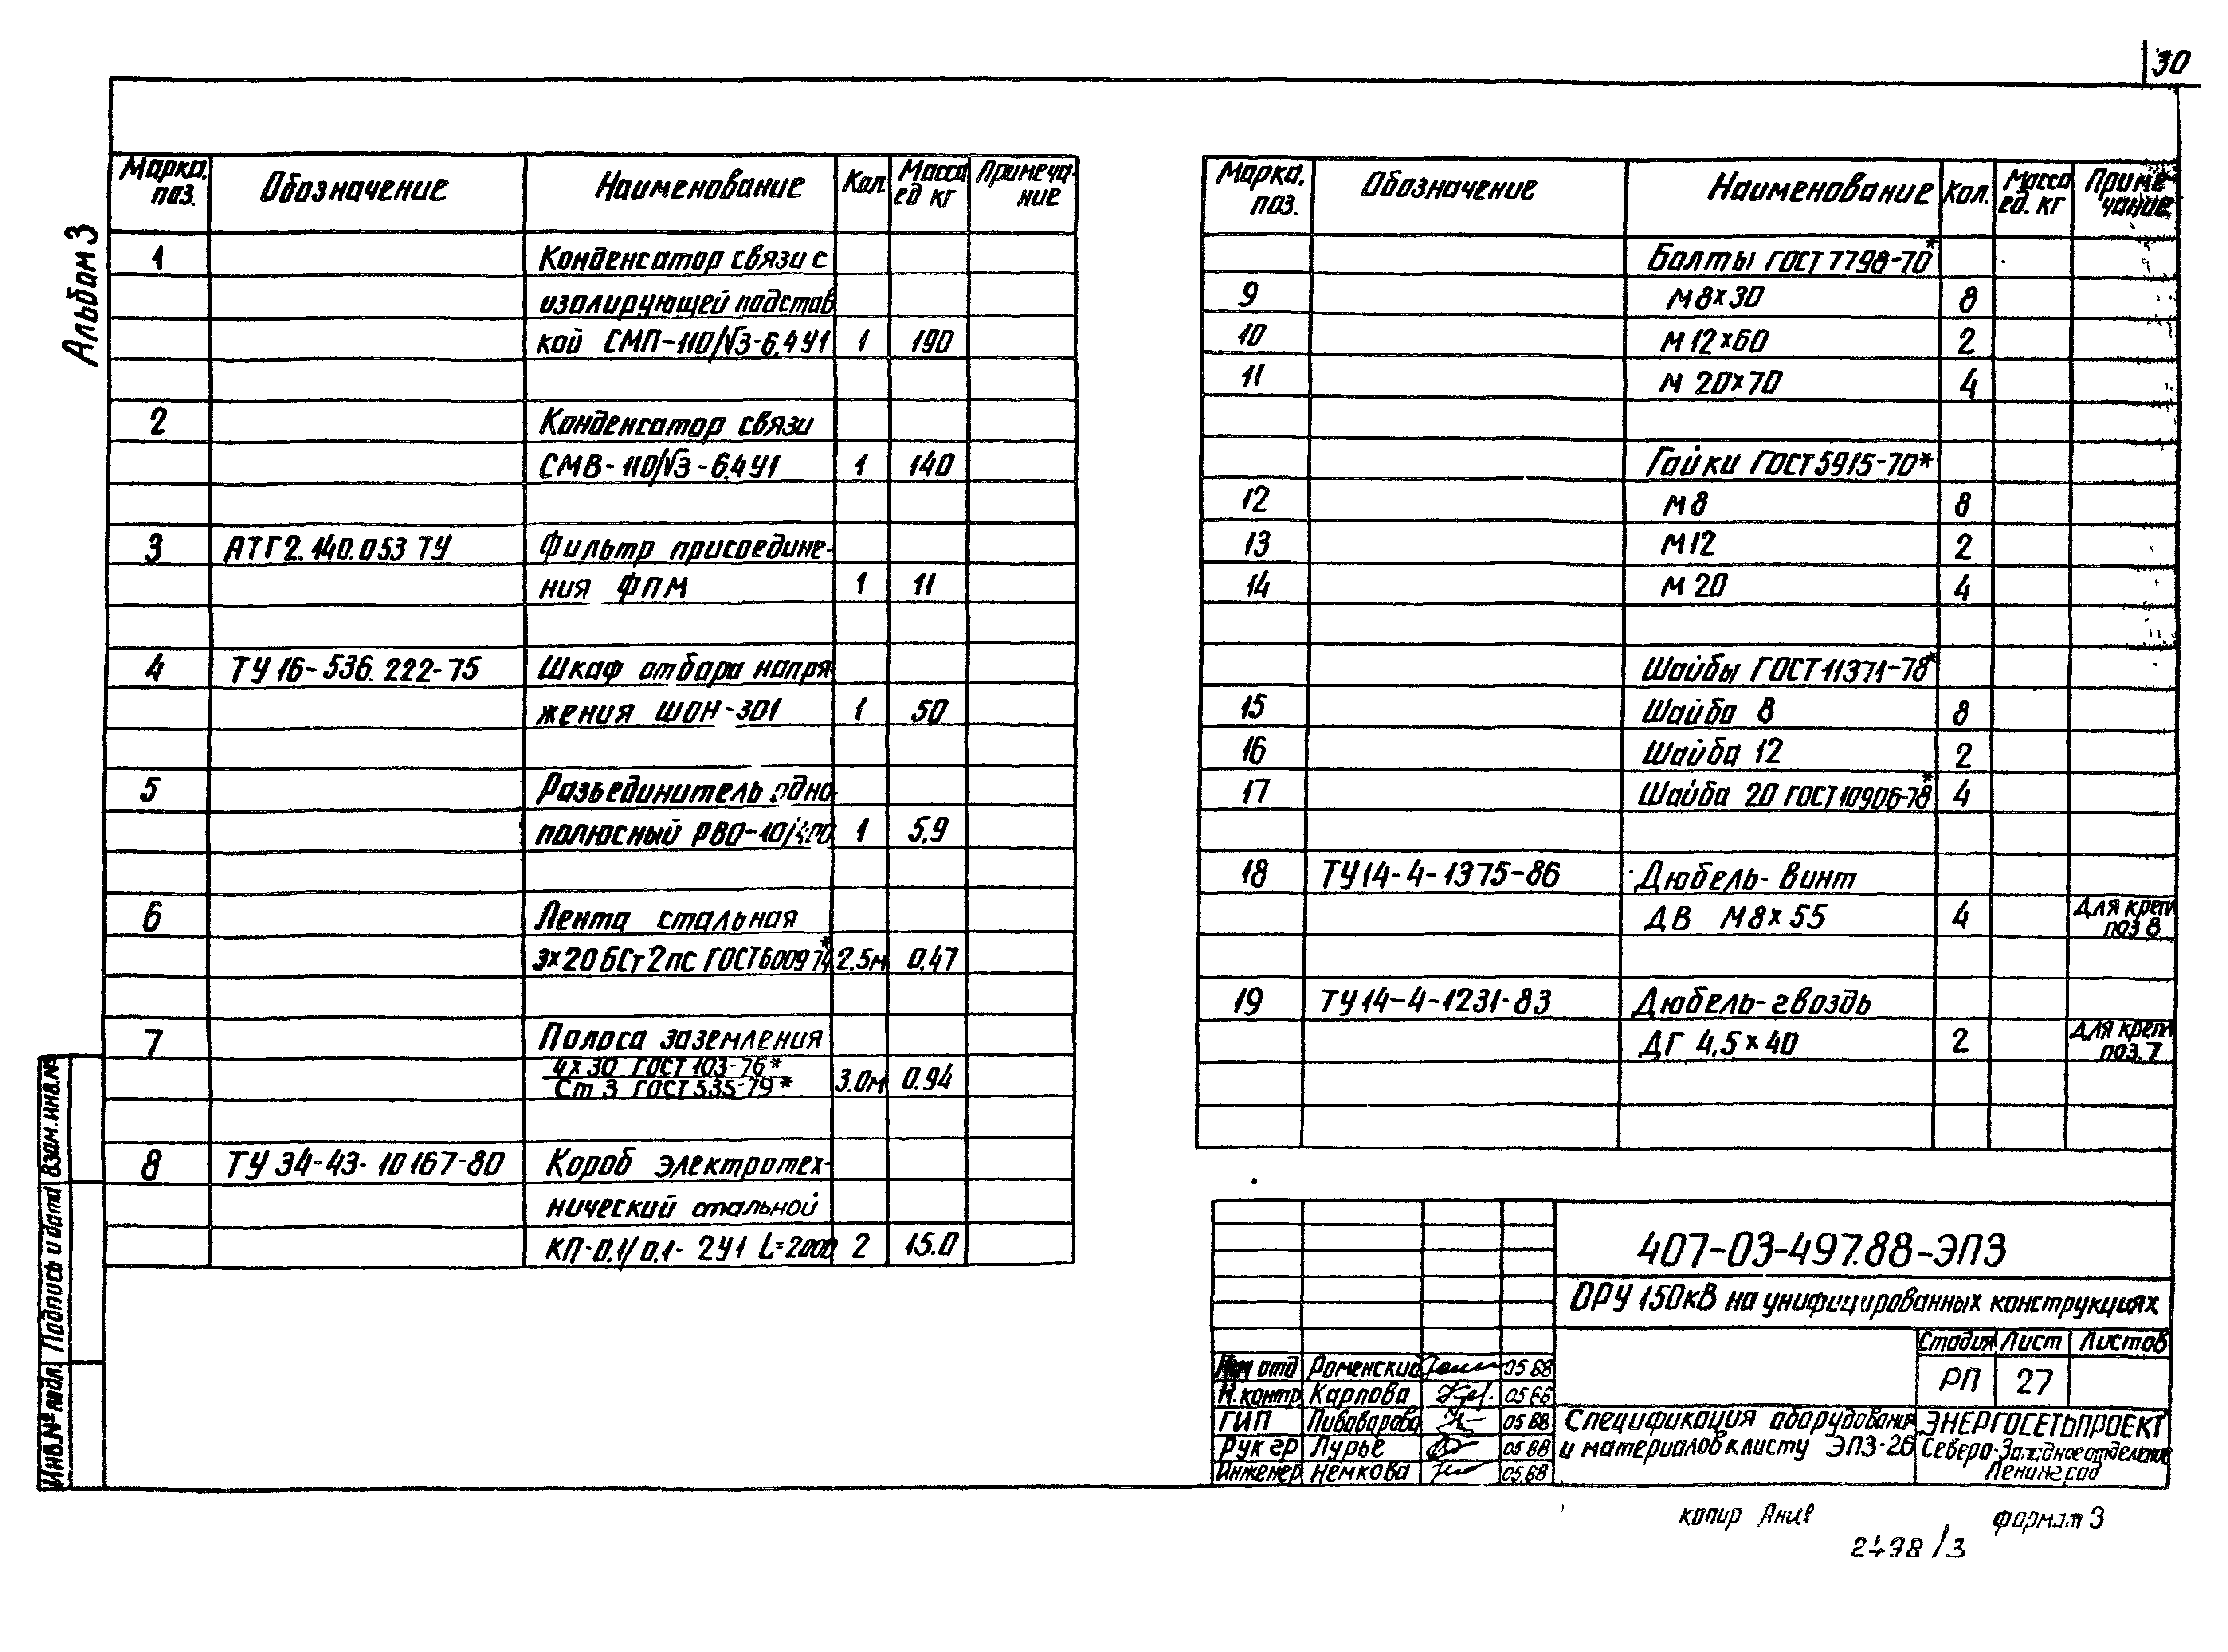 30
Альбом 3
Марка, поз. Обозначение Наименование Кол. Масса ед кг Примечание
1 Конденсатор связи с
изолирующей подстав
кой СМП-110/√3-6,4 У1 1 190
2 Конденсатор связи
СМВ-110/√3-6,4 У1 1 140
3 АТГ2.140.053 ТУ Фильтр присоедине-
ния ФПМ 1 11
4 ТУ 16-536.222-75 Шкаф отбора напря
жения ШОН-301 1 50
5 Разъединитель одно
полюсный РВО-10/400 1 5,9
6 Лента стальная
3×20 БСт2пс ГОСТ6009-74* 2.5м 0.47
7 Полоса заземления
4×30 ГОСТ 103-76*
Ст 3 ГОСТ 535-79* 3.0м 0.94
8 ТУ 34-43-10167-80 Короб электротех-
нический стальной
КП-0.1/0.1-2У1 L=2000 2 15.0
Марка, поз. Обозначение Наименование Кол. Масса ед. кг Примечание
Болты ГОСТ 7798-70*
9 М8×30 8
10 М12×60 2
11 М20×70 4
Гайки ГОСТ 5915-70*
12 М8 8
13 М12 2
14 М20 4
Шайбы ГОСТ 11371-78*
15 Шайба 8 8
16 Шайба 12 2
17 Шайба 20 ГОСТ10906-78* 4
18 ТУ14-4-1375-86 Дюбель-винт
ДВ М8×55 4 для креп. поз 8
19 ТУ14-4-1231-83 Дюбель-гвоздь
ДГ 4,5×40 2 для креп. поз. 7
407-03-497.88-ЭПЗ
ОРУ 150кВ на унифицированных конструкциях
Стадия Лист Листов
РП 27
Нач отд Роменский 05 88
Н.контр Карпова 05 88
ГИП Пивоварова 05 88
Рук гр Лурье 05 88
Инженер Немкова 05.88
Спецификация оборудования
и материалов к листу ЭПЗ-26
ЭНЕРГОСЕТЬПРОЕКТ
Северо-Западное отделение
Ленинград
Взам.инв.№
Подпись и дата
Инв.№ подл.
копир
формат 3
2498/3